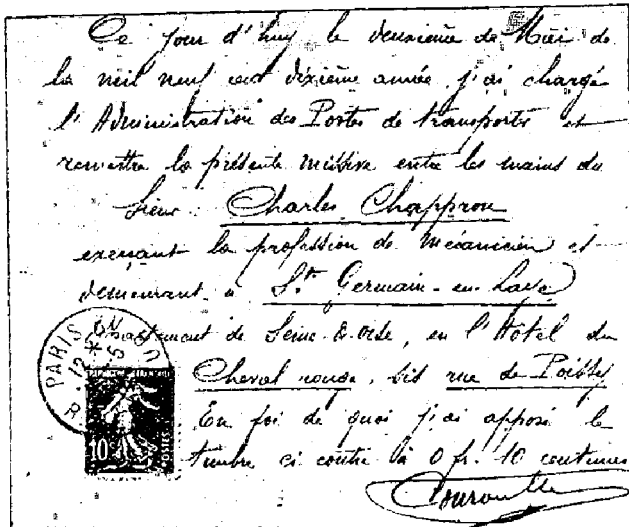 Ce jour d'huy le deuxième de Mai de
la mil neuf cent dixième année j'ai chargé
l'Administration des Postes de transporter et
remettre la présente missive entre les mains du
Sieur Charles Chappron
exerçant la profession de mécanicien et
demeurant à St Germain-en-Laye
département de Seine & Oise, en l'Hôtel du
Cheval rouge, sis rue de Poissy
En foi de quoi j'ai apposé le
timbre ci contre à 0 fr. 10 centimes
PARIS
10
POSTES